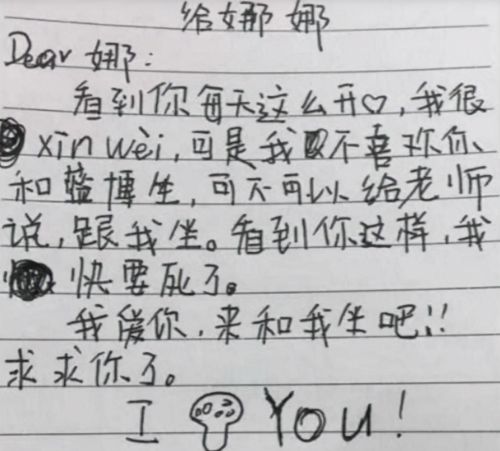 给娜娜
Dear 娜:
看到你每天这么开♡,我很
xīn wèi,可是我不喜欢你
和蓝博生,可不可以给老师
说,跟我坐。看到你这样,我
快要死了。
我爱你,来和我坐吧!!
求求你了。
I You!